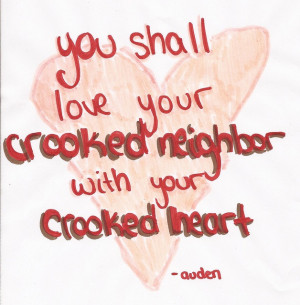 you shall
love your
crooked neighbor
with your
crooked heart
-auden